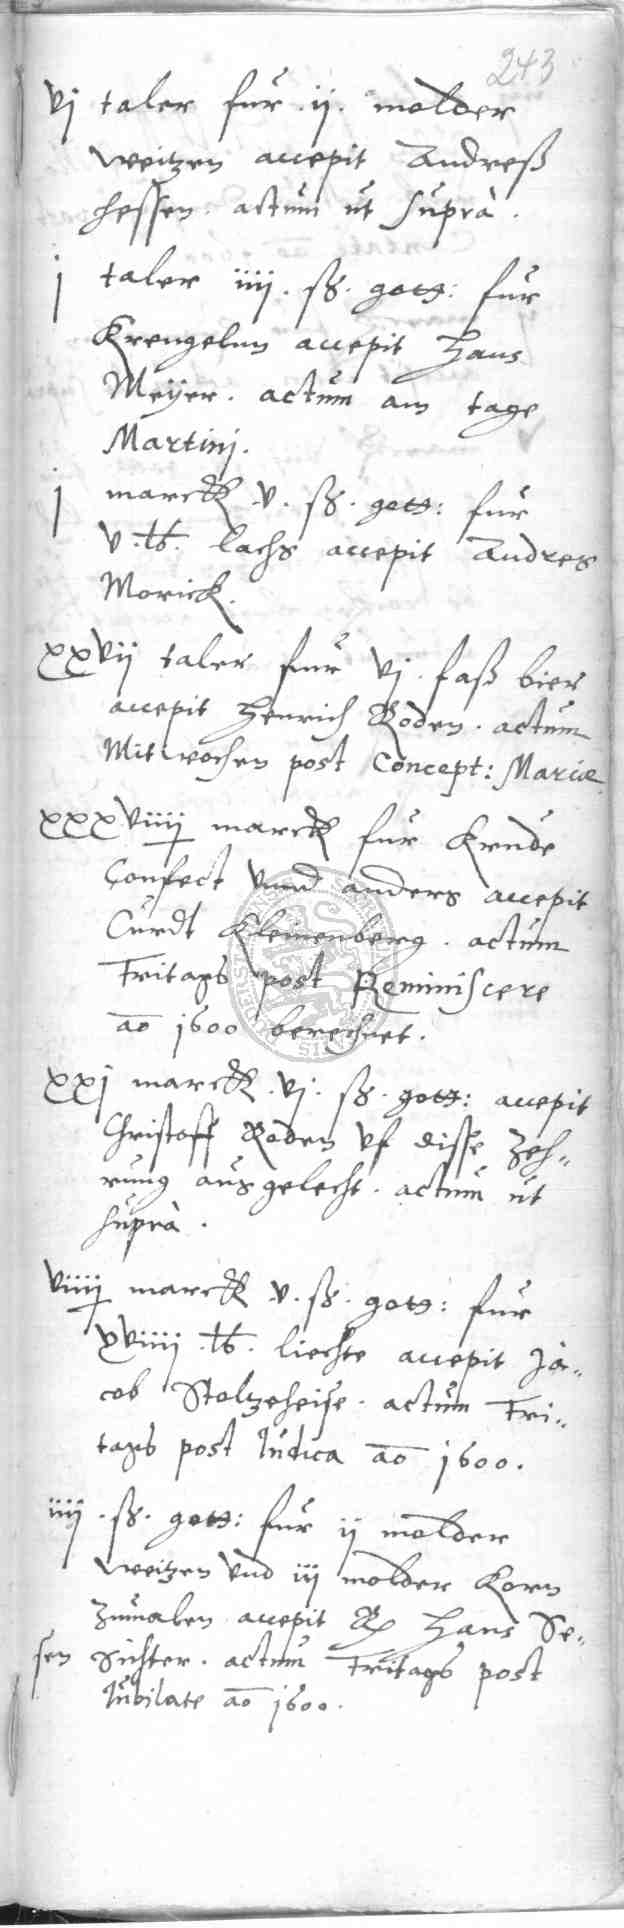 243
vj taler fur .ij. molder
weitzen accepit Andreß
Hessen. actum ut suprà.
j taler iiij. ß. gott: fur
Krengelun accepit Hans
Meÿer. actum am tage
Martinj.
j marck v. ß. gott: fur
v. lb. lachs accepit Andres
Morick.
xxvij taler fur vj. faß bier
accepit Henrich Roden. actum
Mitwochen post Concept: Mariæ
xxxviiij marck fur Krude
Confect vnnd anders accepit
Curdt Kleinenberg. actum
Fritags post Reminiscere
ao 1600 berechnet.
xxj marck. vj. ß. gott: accepit
Christoff Roden vf disse Zeh„
rung ausgelecht. actum ut
suprà.
viiij marck v. ß. gott: fur
xviiij. lb. liechte accepit Ja„
cob Stolzeheise. actum Fri„
tags post Iudica ao 1600.
iiij. ß. gott: fur ij molder
weitzen vnd iij molder Korn
Zumalen accepit Hans Se„
sen Sichter. actum Fritags post
Iubilate ao 1600.